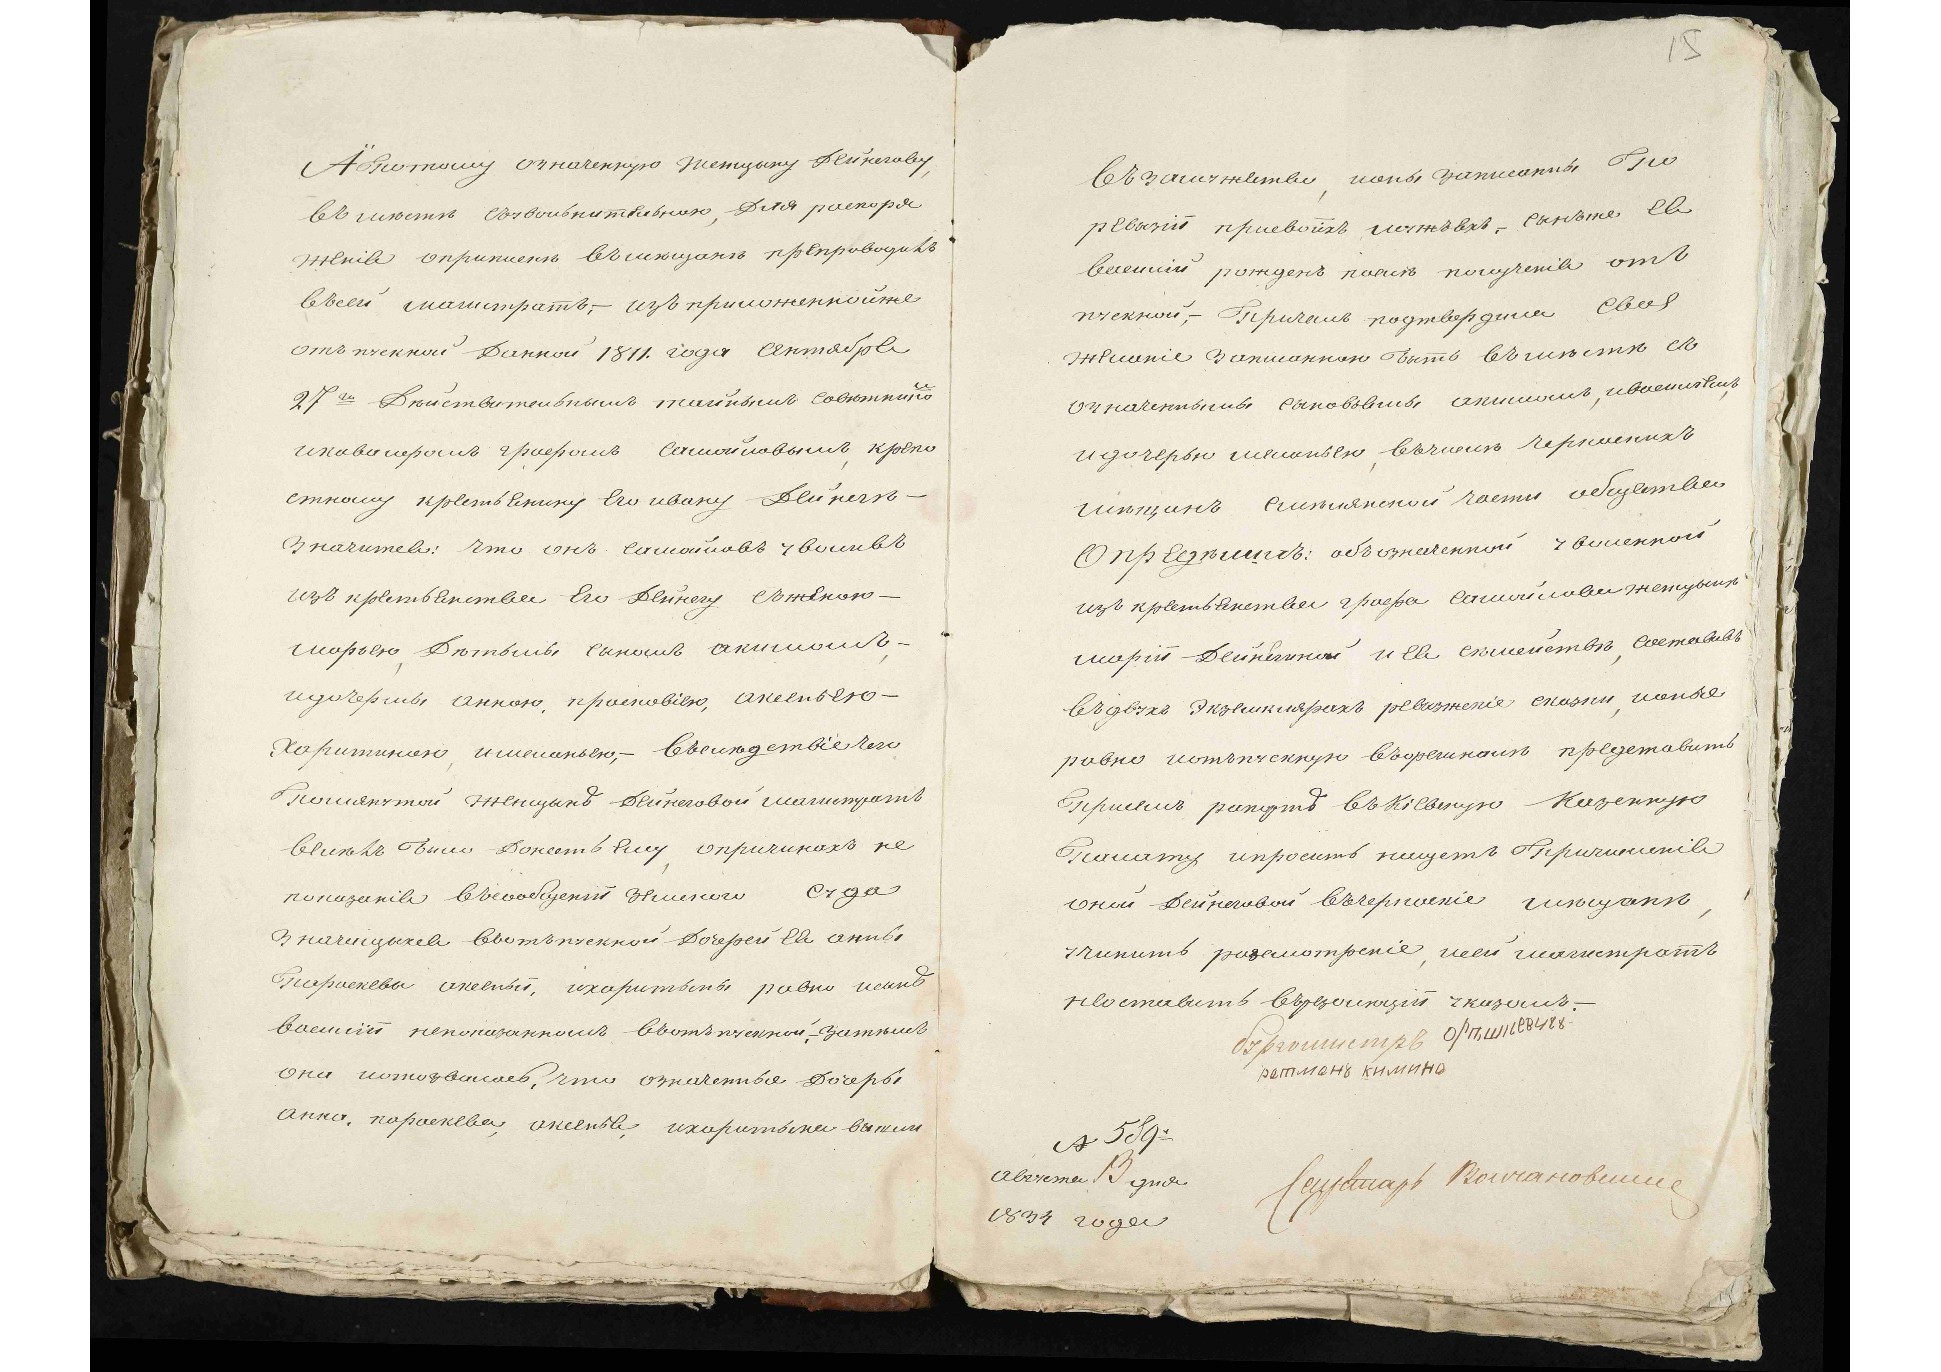 А потому означенную женщину Дейнегову,
въ месте съзвольнительною, для распоря
женія оприписке въмещане препроводить
въсей магистратъ,- изъприложеннойже
отъпускной данной 1811. года Сентября
27го Действительнымъ тайнымъ Советникомъ
икавалеромъ графомъ Самойловымъ, крепо
стному крестьенину его ивану Дейнеге-
значится: что онъ Самойловъ уволивъ
изъкрестьенства его Дейнегу съженою-
марьею, Детьми сыномъ акимомъ,-
идочерми анною, прасковіею, аксеньею-
Харитиною, имеланьею,- въследствіе чего
Помянутой женщине Дейнеговой магистратъ
велелъ было донесть ему, опричинахъ не
показанія въсообщеніи земского Суда
значущихся въотъпускной Дочерей ея анны
Параскевы аксеньи, ихаритины равно исына
василія непоказанномъ въотъпускной,- затемъ
она иотозвалась, что означенные Дочеры
анна, параскева, аксенья, ихаритына вышли
15
въ замужества, иони записанны По
ревизіи присвоихъ мужьяхъ,- сынъже ея
василій рожденъ после полученія отъ
пускной,- Причемъ подтвердила свое
желаніе записанною быть въместе съ
означенными сыновьями акимомъ, ивасилемъ,
идочерью меланьею, въчисле Черкаскихъ
мещанъ Смелянской части общества
Определилъ: объозначенной уволенной
изъкрестьенства графа Самойлова женщине
маріи Дейнеговой иея семействе, составивъ
въдвухъ экземплярахъ ревизжскіе сказки, ионые
равно иотъпускную въоргинале представить
Присемъ рапорте въКіевскую Казенную
Палату ипросить ищетъ Причисленія
оной Дейнеговой въчеркаскіе мещане,
учинить разсмотреніе, исей магистратъ
неоставить върезолюціи указомъ.-
бургомистръ
ратманъ кимина
№ 589.
августа 13 дня
1834 года
Секретарь